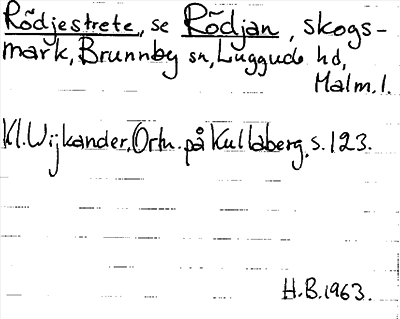 Rõdjestrete, se Rõdjan, skogs-
mark, Brunnby sn, Luggude hd,
Malm. l.
Kl. Wijkander, Ortn. på Kullaberg, s. 123.
H.B. 1963.